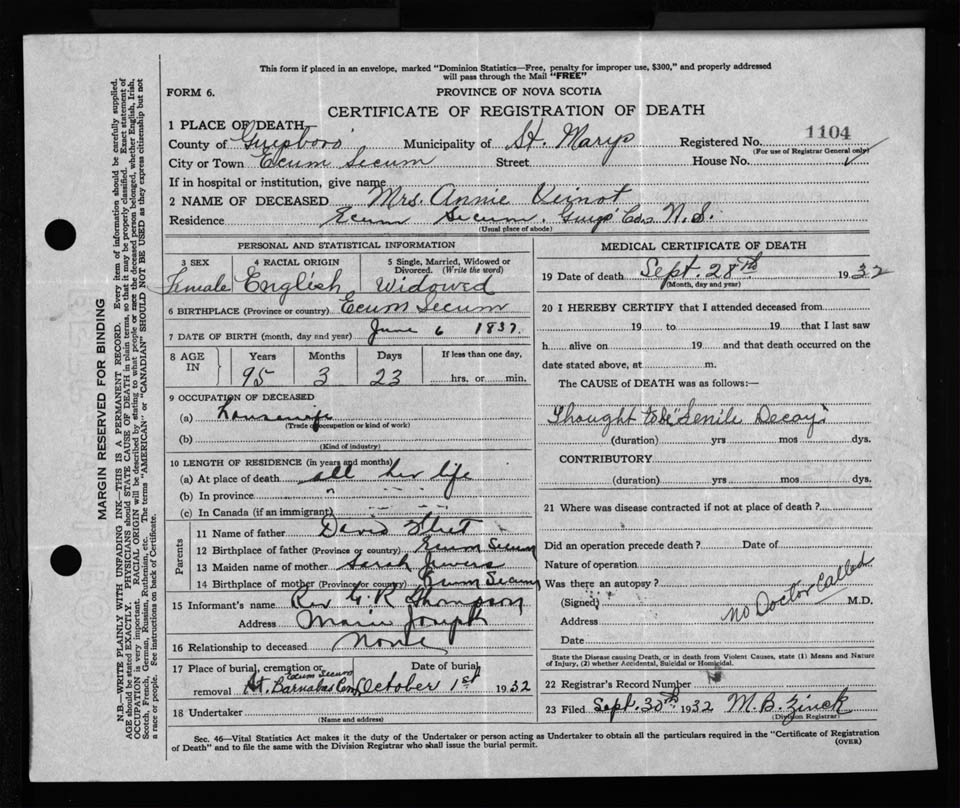 This form if placed in an envelope, marked "Dominion Statistics—Free, penalty for improper use, $300," and properly addressed
will pass through the Mail "FREE"
FORM 6.
PROVINCE OF NOVA SCOTIA
CERTIFICATE OF REGISTRATION OF DEATH
1 PLACE OF DEATH
County of Guysboro Municipality of St. Marys Registered No. 1104
(For use of Registrar General only)
City or Town Ecum Secum Street House No.
If in hospital or institution, give name
2 NAME OF DECEASED Mrs. Annie Veinot
Residence Ecum Secum. Guys' Co. N.S.
(Usual place of abode)
PERSONAL AND STATISTICAL INFORMATION
3 SEX 4 RACIAL ORIGIN 5 Single, Married, Widowed or
Divorced. (Write the word)
Female English Widowed
6 BIRTHPLACE (Province or country) Ecum Secum
7 DATE OF BIRTH (month, day and year) June 6 1837.
8 AGE IN Years Months Days If less than one day,
95 3 23 hrs. or min.
9 OCCUPATION OF DECEASED
(a) housewife
(Trade, occupation or kind of work)
(b)
(Kind of industry)
10 LENGTH OF RESIDENCE (in years and months)
(a) At place of death all her life
(b) In province " "
(c) In Canada (if an immigrant)
Parents
11 Name of father David Fleet
12 Birthplace of father (Province or country) Ecum Secum
13 Maiden name of mother Sarah Jewers
14 Birthplace of mother (Province or country) Ecum Secum
15 Informant's name Rev G. R. Thompson
Address Marie Joseph
16 Relationship to deceased None
17 Place of burial, cremation or Date of burial
Ecum Secum
removal St. Barnabas Cem October 1st 1932
18 Undertaker
(Name and address)
MEDICAL CERTIFICATE OF DEATH
19 Date of death Sept. 28th 1932
(Month, day and year)
20 I HEREBY CERTIFY that I attended deceased from
19 to 19 that I last saw
h alive on 19 and that death occurred on the
date stated above, at m.
The CAUSE of DEATH was as follows:—
Thought to be "Senile Decay".
(duration) yrs mos dys.
CONTRIBUTORY
(duration) yrs mos dys.
21 Where was disease contracted if not at place of death?
Did an operation precede death? Date of
Nature of operation
Was there an autopsy?
(Signed) M.D.
No Doctor Called
Address
Date
State the Disease causing Death, or in death from Violent Causes, state (1) Means and Nature
of Injury, (2) whether Accidental, Suicidal or Homicidal.
22 Registrar's Record Number
23 Filed Sept. 30th 1932 M. B. Zinck
(Division Registrar)
Sec. 46—Vital Statistics Act makes it the duty of the Undertaker or person acting as Undertaker to obtain all the particulars required in the "Certificate of Registration
of Death" and to file the same with the Division Registrar who shall issue the burial permit.
(OVER)
MARGIN RESERVED FOR BINDING
N.B.—WRITE PLAINLY WITH UNFADING INK—THIS IS A PERMANENT RECORD. Every item of information should be carefully supplied.
AGE should be stated EXACTLY. PHYSICIANS should STATE CAUSE OF DEATH in plain terms, so that it may be properly classified. Exact statement of
OCCUPATION is very important. RACIAL ORIGIN will be described by stating to what people or race the deceased person belonged, whether English, Irish,
Scotch, French, German, Russian, Ruthenian, etc. The terms "AMERICAN" or "CANADIAN" SHOULD NOT BE USED as they express citizenship but not
a race or people. See instructions on back of Certificate.